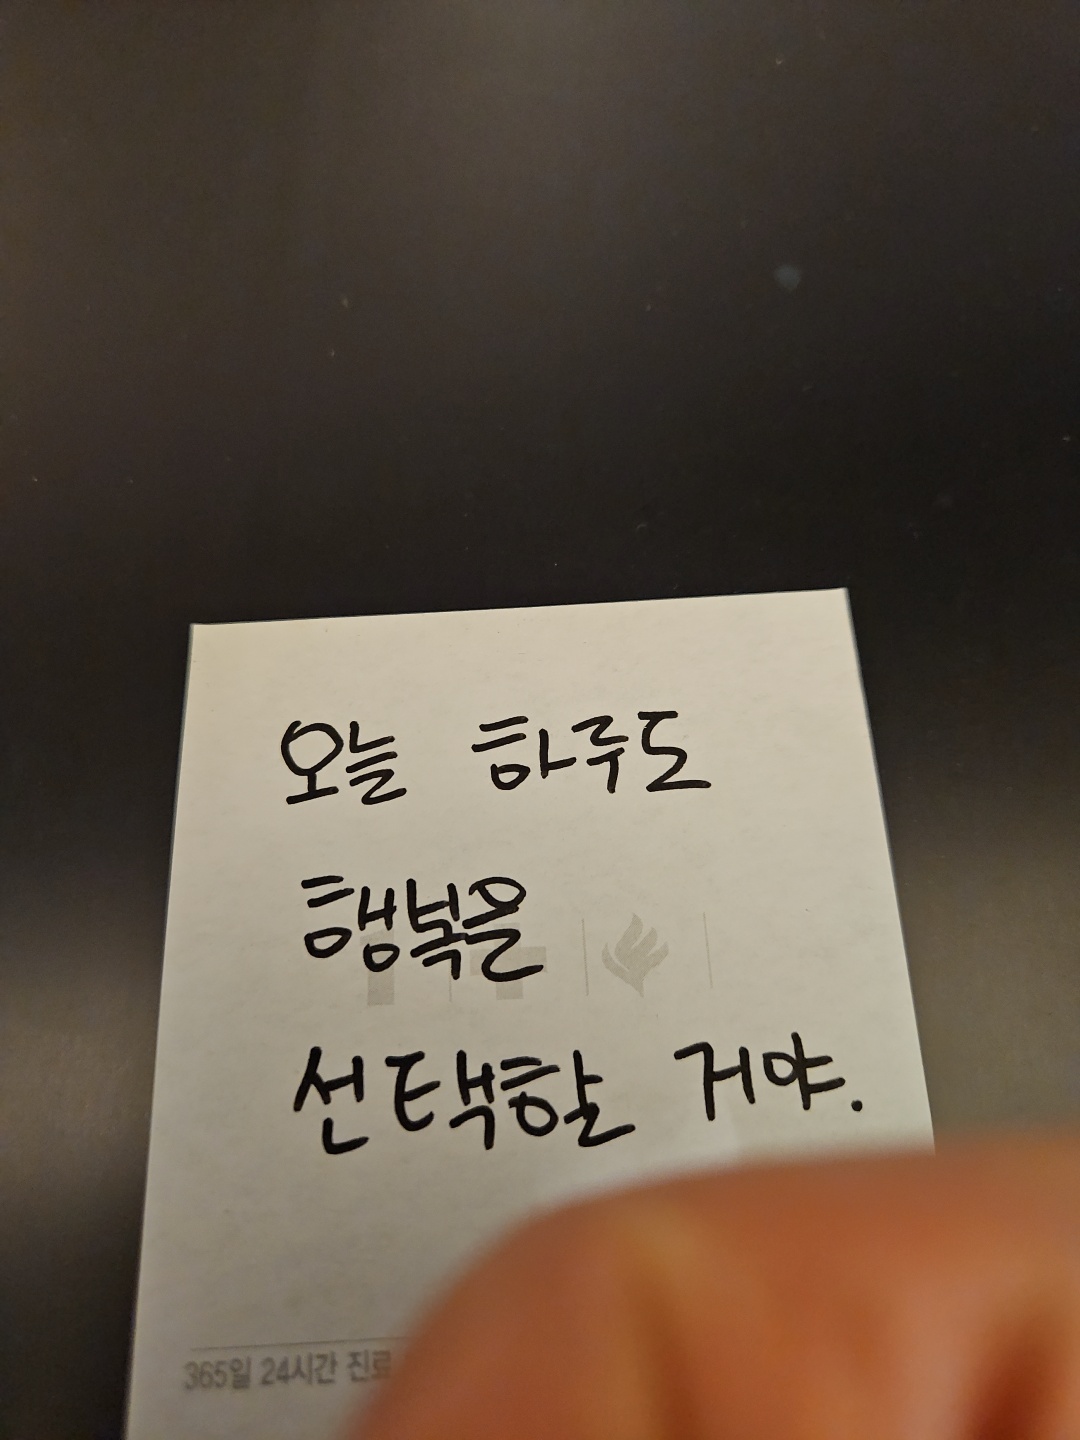 오늘 하루도
행복을
선택할 거야.
365일 24시간 진료